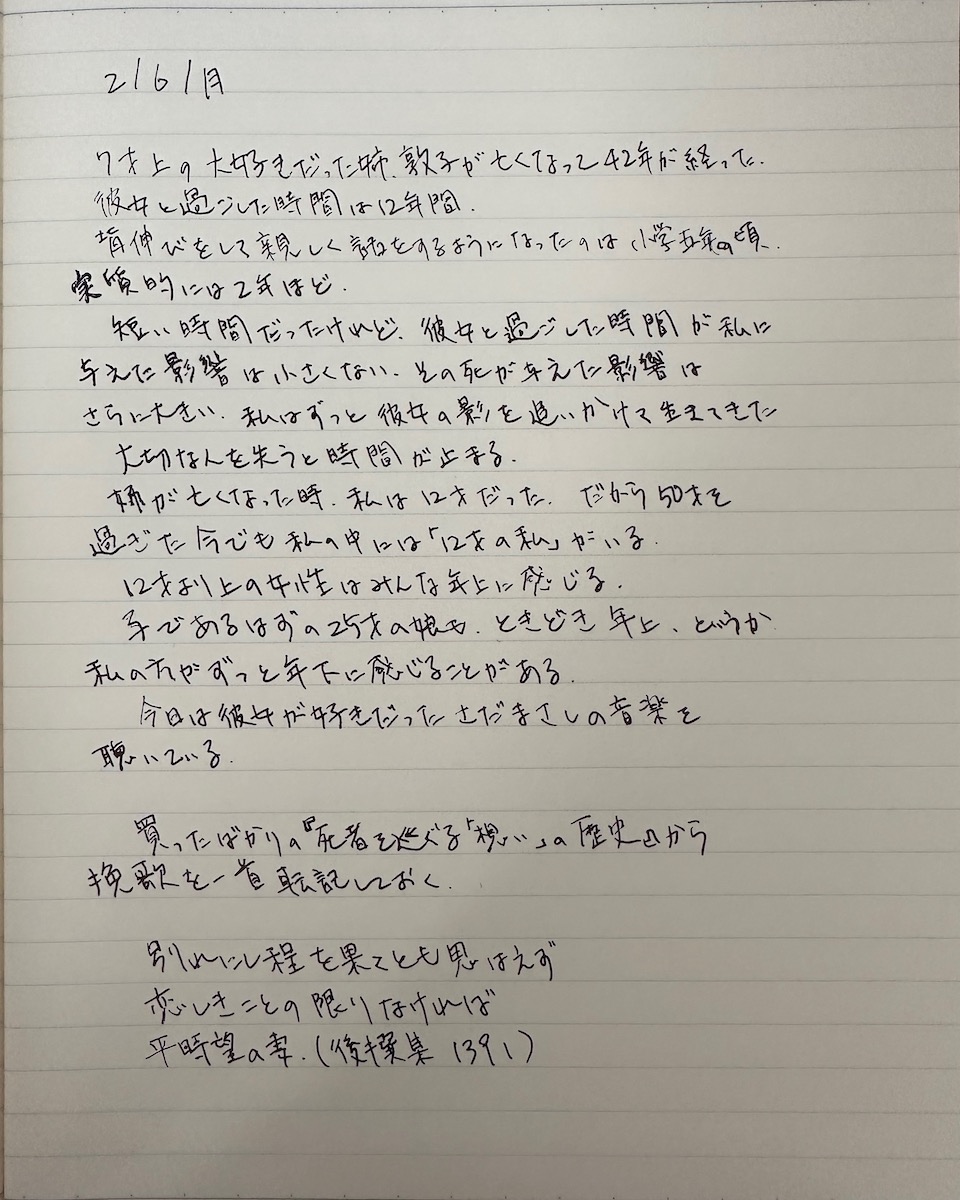 2/6/月
7才上の大好きだった姉、敦子が亡くなって42年が経った.
彼女と過ごした時間は12年間.
背伸びをして親しく話をするようになったのは小学五年の頃.
実質的には2年ほど.
短い時間だったけれど、彼女と過ごした時間が私に
与えた影響は小さくない. その死が与えた影響は
さらに大きい. 私はずっと彼女の影を追いかけて生きてきた
大切な人を失うと時間が止まる.
姉が亡くなった時、私は12才だった. だから50才を
過ぎた今でも私の中には「12才の私」がいる.
12才より上の女性はみんな年上に感じる.
子であるはずの25才の娘も、ときどき年上、というか
私の方がずっと年下に感じることがある.
今日は彼女が好きだったさだまさしの音楽を
聴いている.
買ったばかりの『死者を巡る「想い」の歴史』から
挽歌を一首転記しておく.
別れにし程を果てとも思はえず
恋しきことの限りなければ
平時望の妻. (後撰集 1391)